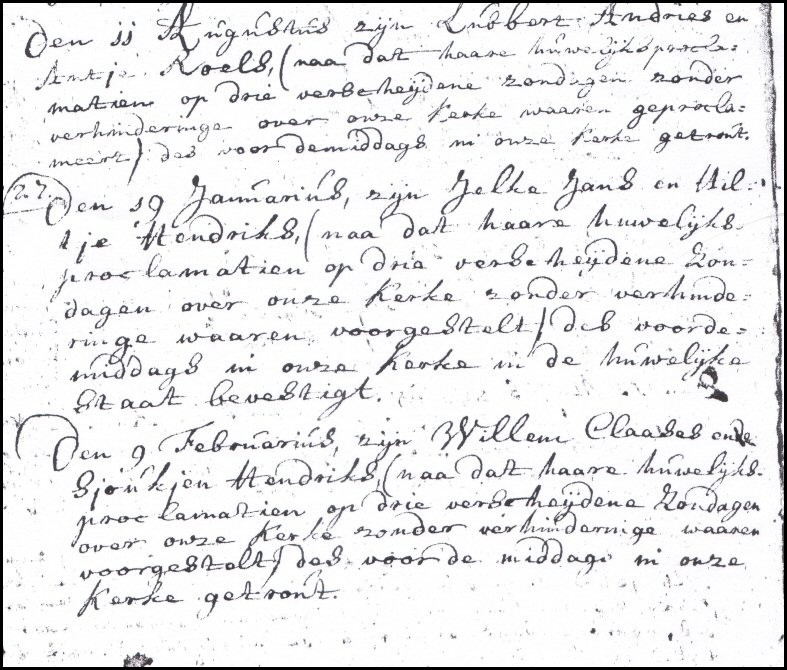 Den 11 Augustus zijn Lubbert Andries en
Antje Roels, (naa dat haare huwelijksprocla=
matien op drie verscheijdene zondagen zonder
verhinderinge over onze Kerke waaren geprocla=
meert) des voordemiddags in onze Kerke getrout.
27. Den 19 Januarius, zijn Jelke Jans en Hil=
tje Hendriks, (naa dat haare huwelijks
proclamatien op drie verscheijdene Zon=
dagen over onze Kerke zonder verhinde=
ringe waaren voorgestelt) des voorde=
middags in onze Kerke in de huwelijke
Staat bevestigt.
Den 9 Februarius, zijn Willem Claases ende
Sjoukjen Hendriks, (naa dat haare huwelijks=
proclamatien op drie verscheijdene Zondagen
over onze Kerke zonder verhinderinge waaren
voorgestelt) des voor de middags in onze
Kerke getrout.